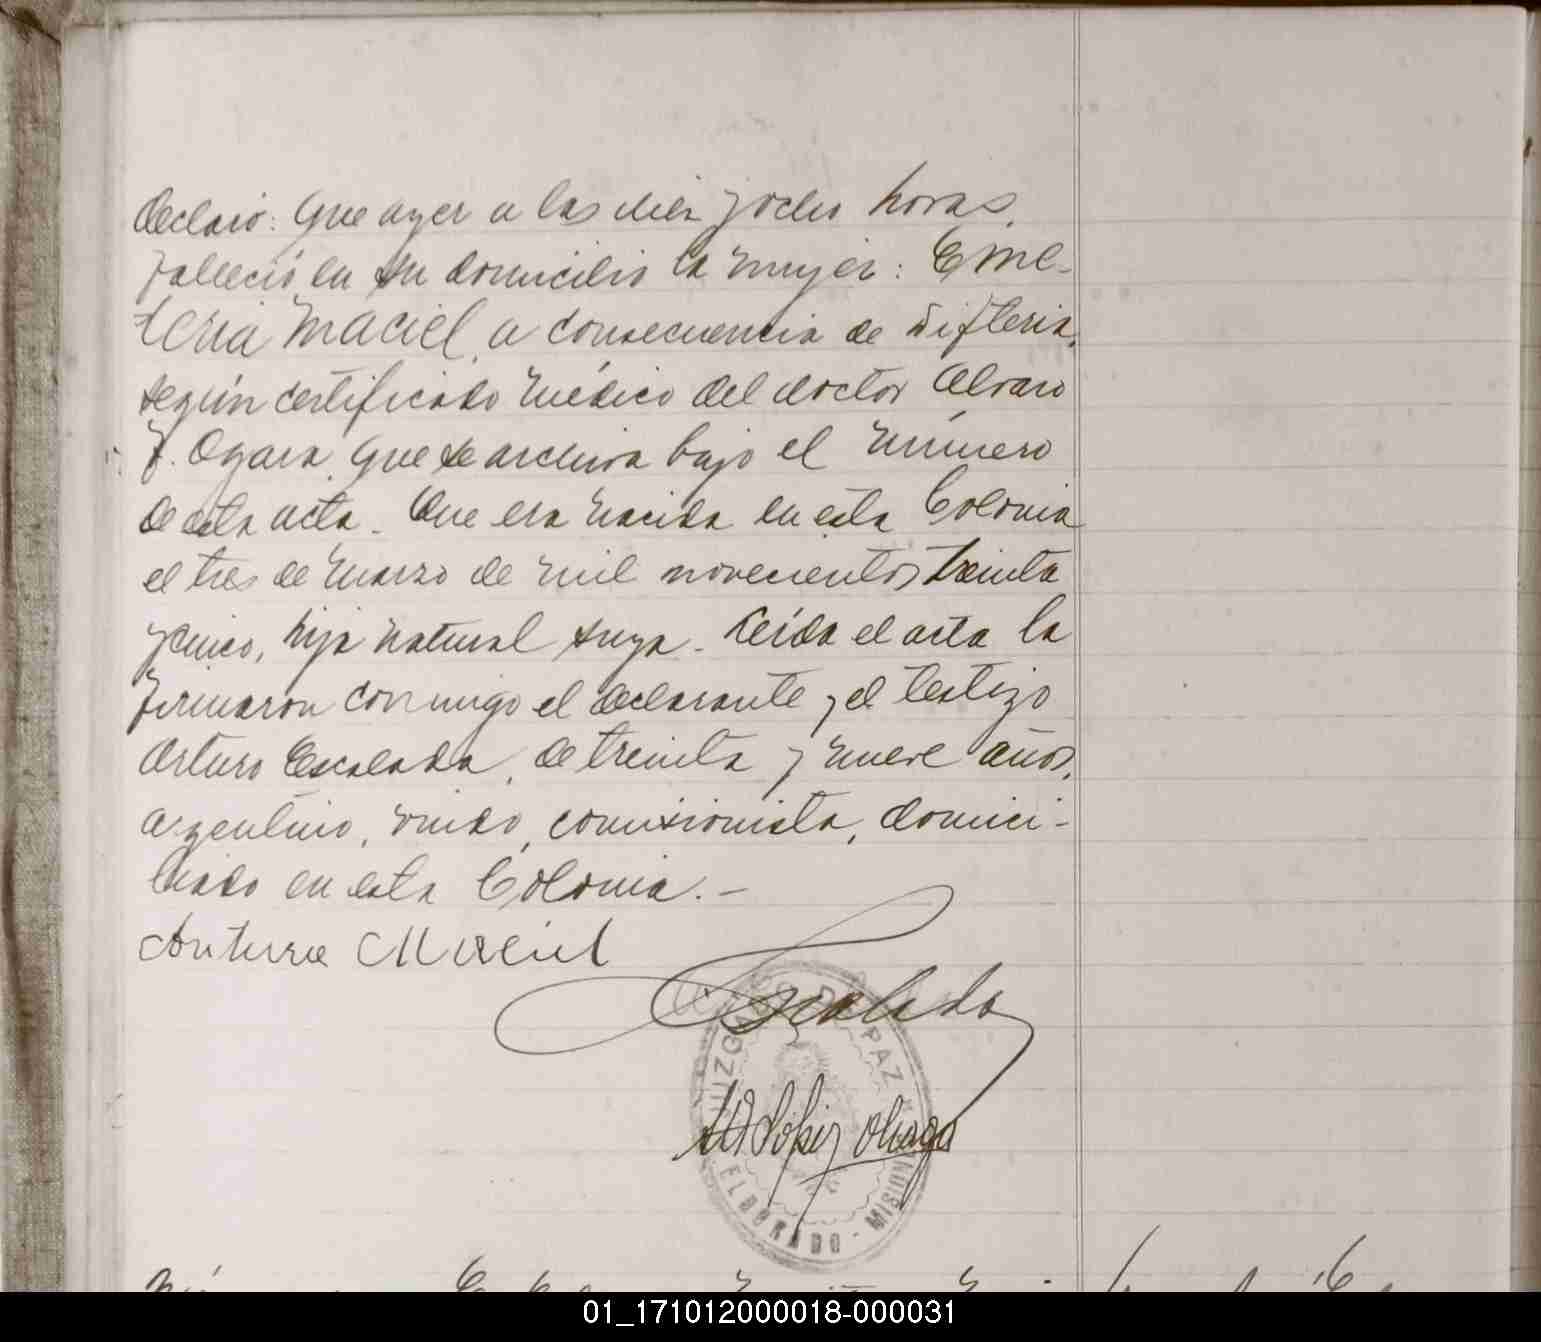 declaró: Que ayer a las diez y ocho horas,
falleció en su domicilio la mujer: Eme-
teria Maciel, a consecuencia de difteria,
según certificado médico del doctor Alvaro
F. Ogara, que se archiva bajo el número
de esta acta. Que era nacida en esta Colonia
el tres de Marzo de mil novecientos treinta
y cinco, hija natural suya. Leída el acta la
firmaron conmigo el declarante y el testigo
Arturo Escalada, de treinta y nueve años,
argentino, viudo, comisionista, domici-
liado en esta Colonia.-
Maciel
Escalada
JUZGADO DE PAZ
López
ELDORADO - MISIONES
01_171012000018-000031